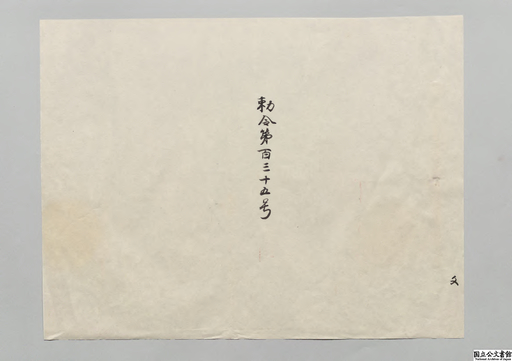 勅令第百三十五号
文
国立公文書館
National Archives of Japan